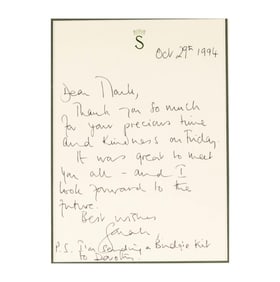 S
Oct 29th 1994
Dear Mark,
Thank you so much
for your precious time
and kindness on Friday.
It was great to meet
you all - and I
look forward to the
future.
Best wishes
Sarah
P.S. I'm sending a Budgie Kit
to